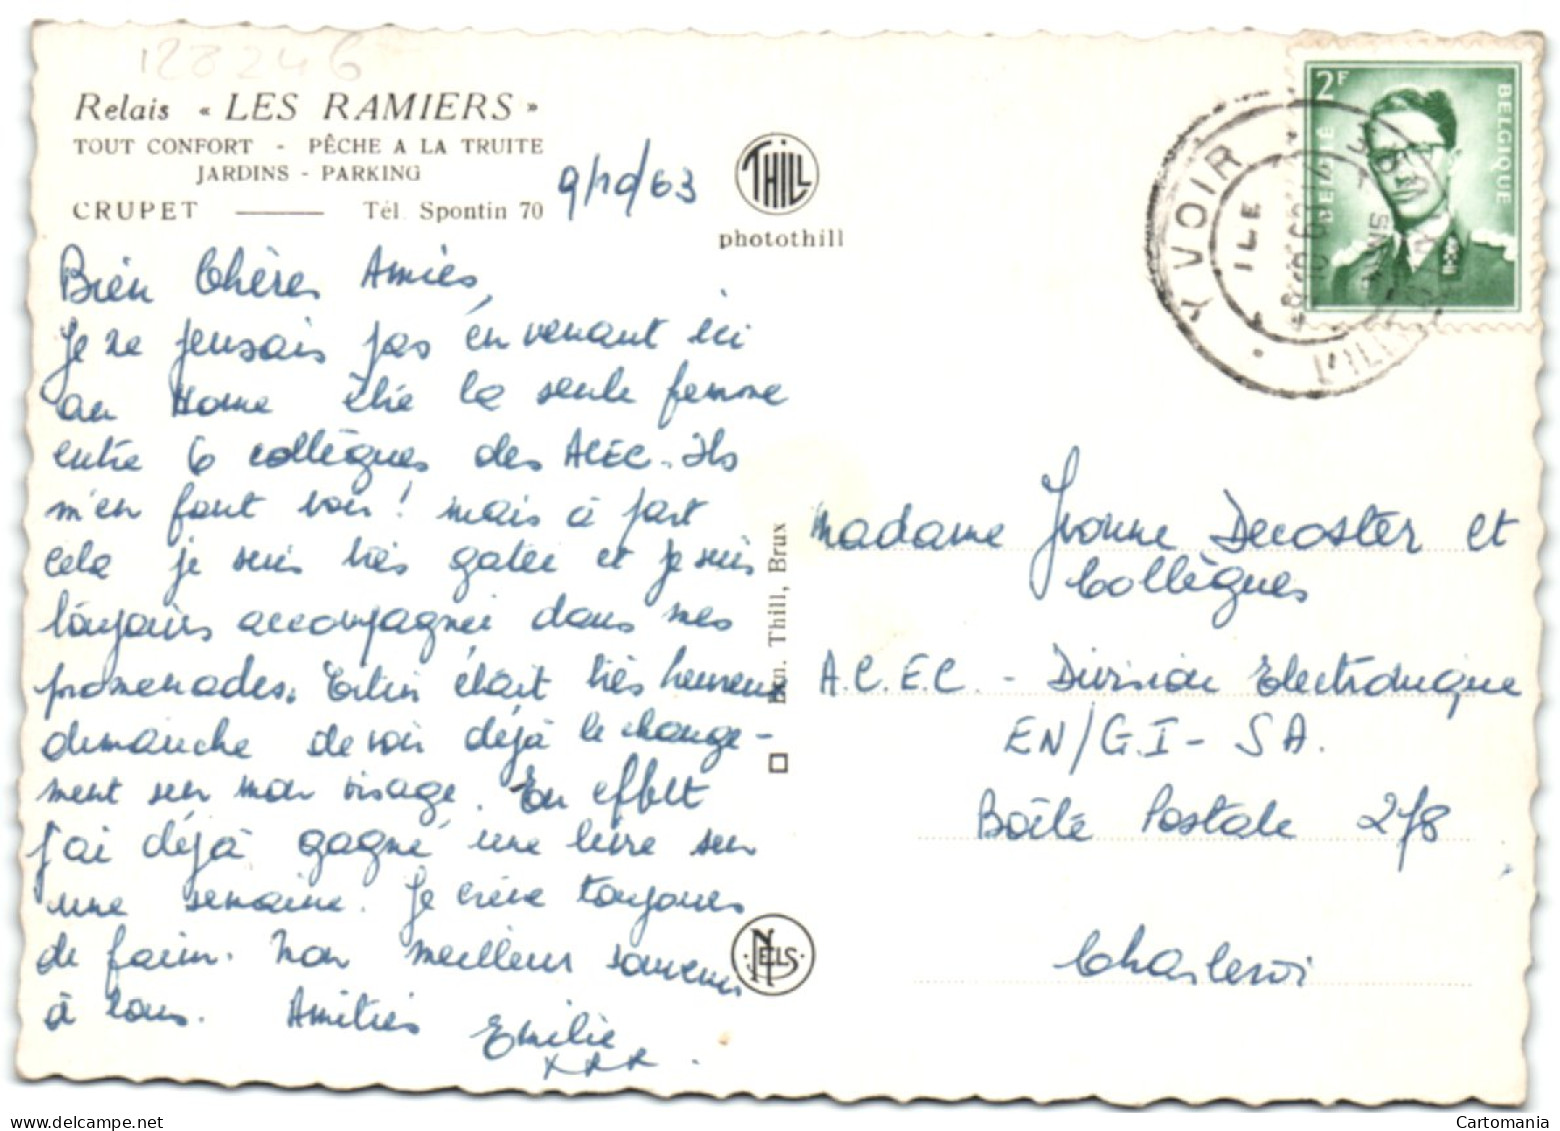 128246
Relais « LES RAMIERS »
TOUT CONFORT - PÊCHE A LA TRUITE
JARDINS - PARKING
CRUPET ——— Tél. Spontin 70
9/10/63
THILL
photothill
2F
BELGIE
BELGIQUE
YVOIR
Bien Chères Amies,
Je ne pensais pas en venant ici
au Home être la seule femme
entre 6 collègues des ACEC. Ils
m'en font voir! mais à part
cela je suis très gatée et je suis
toujours accompagnée dans mes
promenades. était très heureux
dimanche de voir déjà le change-
ment sur mon visage. En effet
j'ai déjà gagné une livre sur
une semaine. Je crève toujours
de faim. Mon meilleur souvenir
à tous. Amitiés Emilie
xxx.
Edn. Thill, Brux
NELS
Madame Yvonne Decoster et
Collègues
A.C.E.C. - Division Electronique
EN/G.I - SA.
Boîte Postale 278
Charleroi
Cartomania